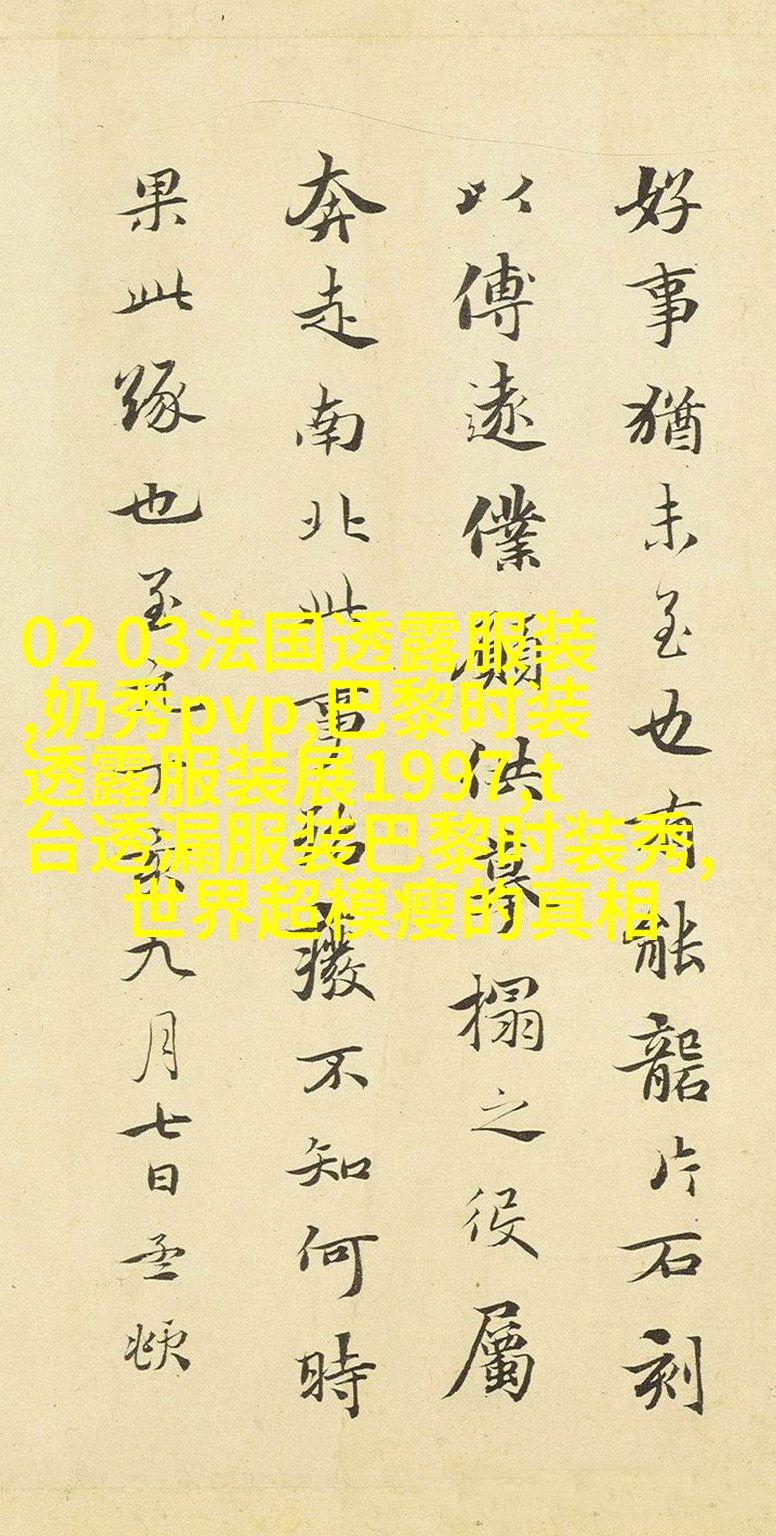 好事猶未至也有能礱片石刻
以傅遠僕願供摹搨之役屬
奔走南北此事廢不知何時
果此緣也至元丁亥九月七日孟頫
02 03法国透露服装
,奶秀pvp,巴黎时装
透露服装展1997,t
台透漏服装巴黎时装秀,
世界超模瘦的真相